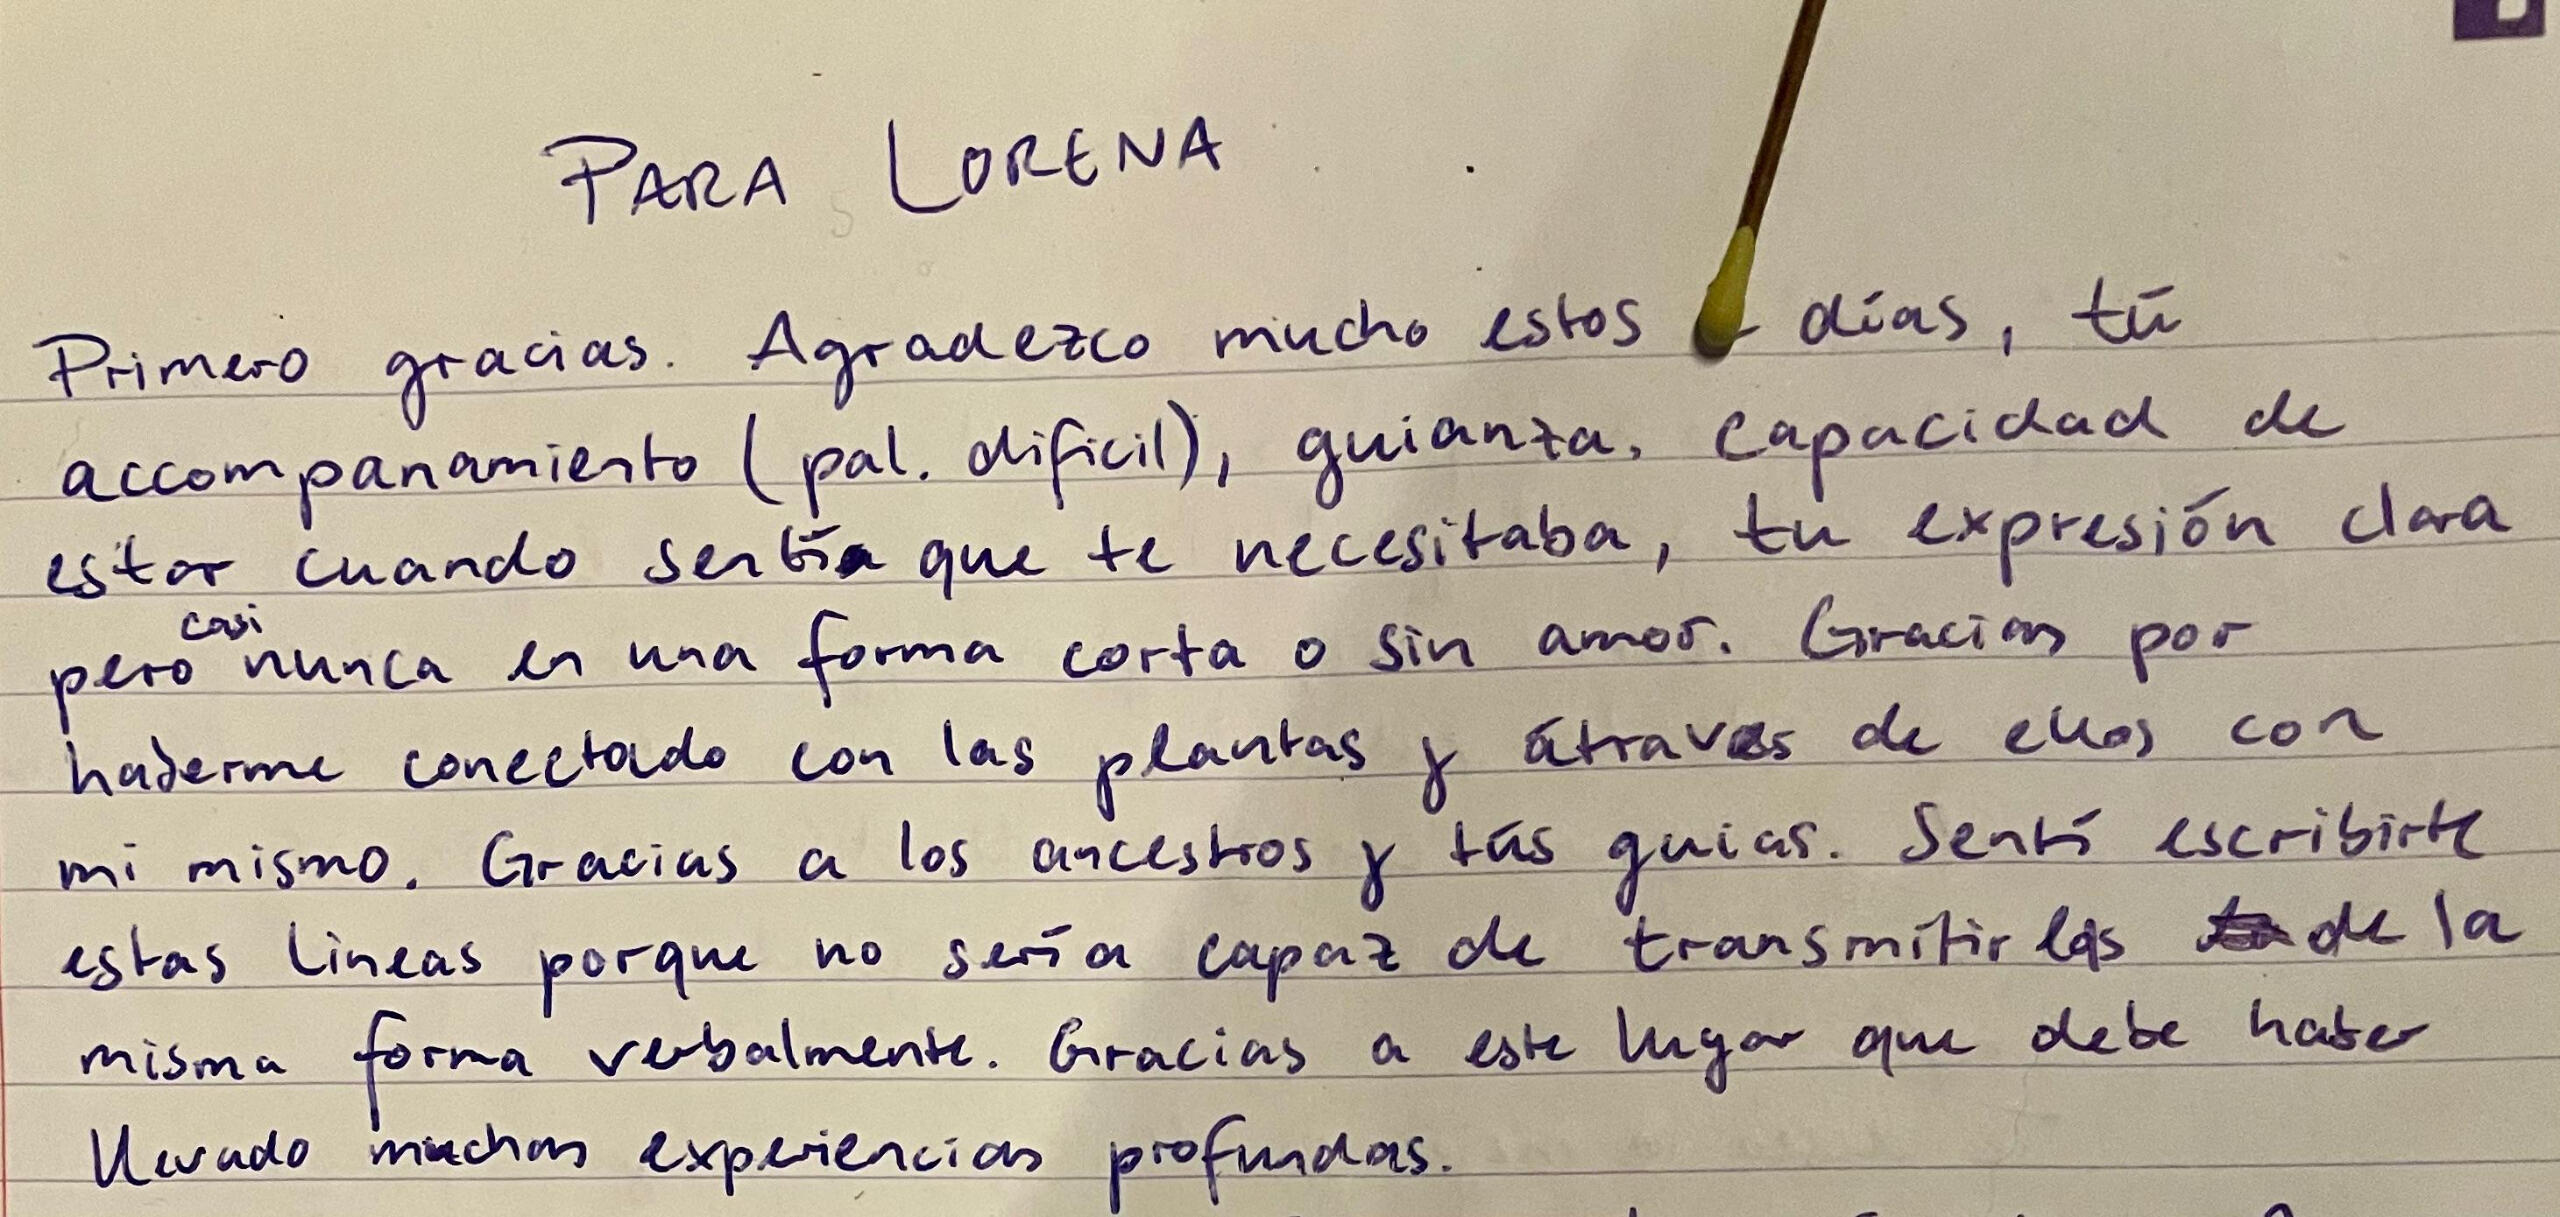 PARA LORENA
Primero gracias. Agradezco mucho estos días, tú
accompanamiento (pal. dificil), guianza, capacidad de
estar cuando sentía que te necesitaba, tu expresión clara
pero casi nunca en una forma corta o sin amor. Gracias por
haberme conectado con las plantas y átraves de ellos con
mi mismo. Gracias a los ancestros y tús guias. Sentí escribirte
estas lineas porque no sería capaz de transmitirlas de la
misma forma verbalmente. Gracias a este lugar que debe haber
llevado muchas experiencias profundas.